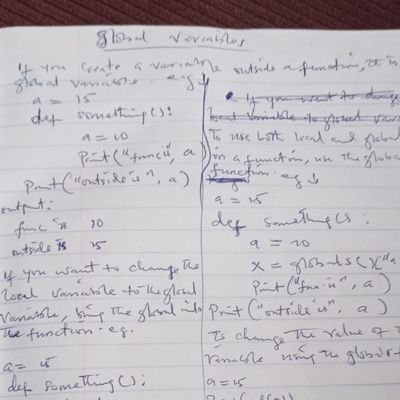 Global Variables
If you create a variable outside a function, it is
global variable. eg ↓
a = 15
def something():
a = 10
Print("func is", a)
Print("outside is", a)
output:
func is 10
outside is 15
If you want to change the
local variable to the global
variable, bring the global into
the function. eg.
a = 15
def something():
If you want to change
local variable to global
To use both local and global
in a function, use the global
function. eg ↓
a = 15
def something():
a = 10
x = globals()["a
Print("fun is", a)
Print("outside is", a)
To change the value of
variable using the globals
a = 15